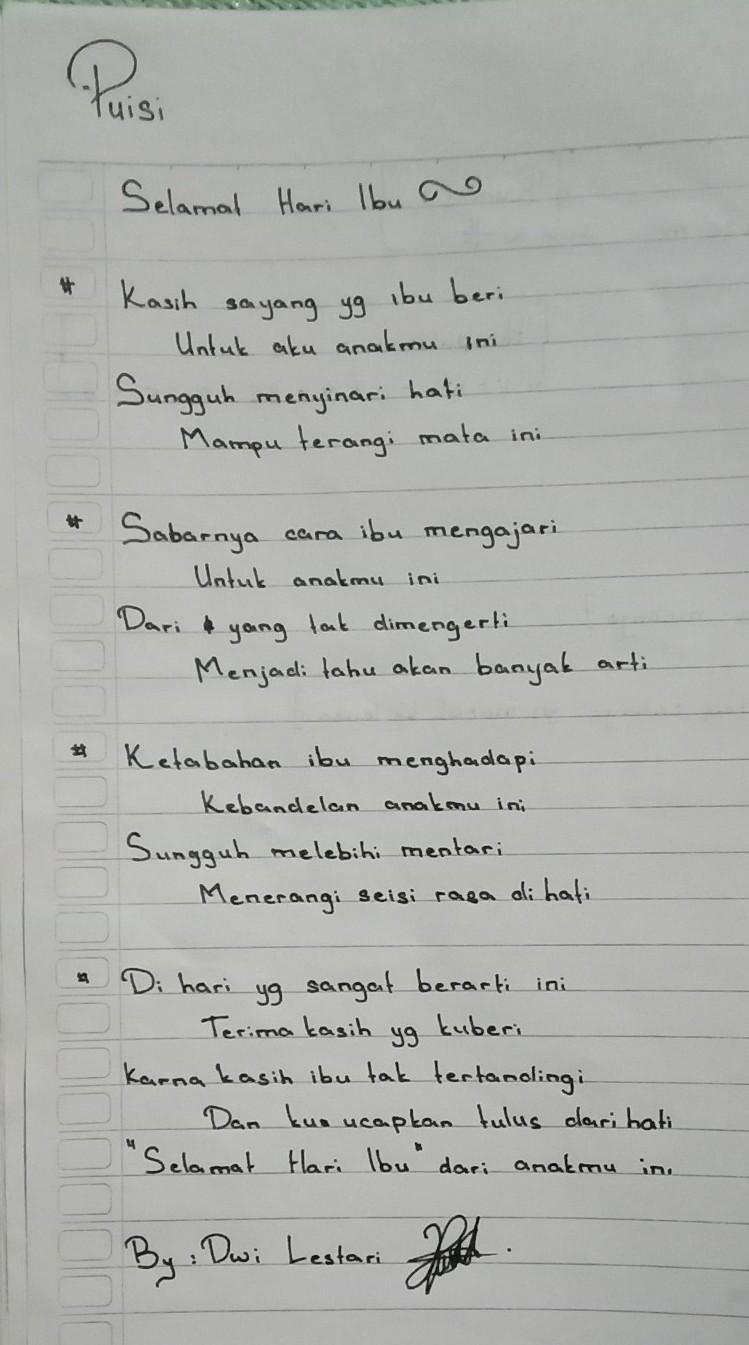 Puisi
Selamat Hari Ibu
# Kasih sayang yg ibu beri
Untuk aku anakmu ini
Sungguh menyinari hati
Mampu terangi mata ini
# Sabarnya cara ibu mengajari
Untuk anakmu ini
Dari yang tak dimengerti
Menjadi tahu akan banyak arti
# Ketabahan ibu menghadapi
Kebandelan anakmu ini
Sungguh melebihi mentari
Menerangi seisi rasa di hati
# Di hari yg sangat berarti ini
Terima kasih yg kuberi
Karna kasih ibu tak tertandingi
Dan kuucapkan tulus dari hati
"Selamat Hari Ibu" dari anakmu ini
By : Dwi Lestari